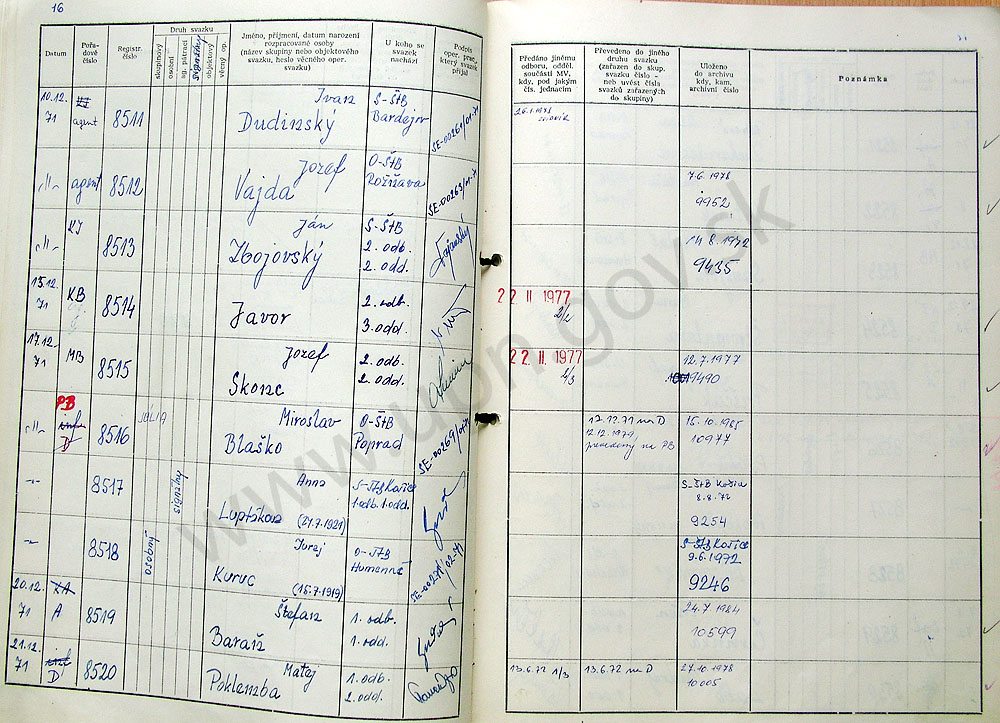 16
Datum
Pořadové číslo
Registr. číslo
Druh svazku
skupinový
osobní
sg. pátrací
signálny
objektový
věcný op.
Jméno, příjmení, datum narození
rozpracované osoby
(název skupiny nebo objektového
svazku, heslo věcného oper.
svazku)
U koho se
svazek
nachází
Podpis
oper. prac.,
který svazek
přijal
Předáno jinému
odboru, odděl.
součásti MV,
kdy, pod jakým
čís. jednacím
Převedeno do jiného
druhu svazku
(zařazen do skup.
svazku číslo -
neb uvést čísla
svazků zařazených
do skupiny)
Uloženo
do archivu
kdy, kam,
archivní číslo
Poznámka
10.12.
71
agent
8511
Ivan
Dudinský
S-ŠtB
Bardejov
SE-00261/01-71
26.1.1978
-"-
agent
8512
Jozef
Vajda
O-ŠtB
Rožňava
SE-00263/01-71
7.6.1978
9952
-"-
KI
8513
Ján
Zbojovský
S-ŠtB
2. odb.
2. odd.
14.8.1972
9435
15.12.
71
KB
8514
Javor
2. odb.
3. odd.
22 II 1977
2/2
17.12.
71
MB
8515
Jozef
Skonc
2. odb.
2. odd.
22 II 1977
2/3
12.7.1977
9490
-"-
PB
D
8516
JÚLIA
Miroslav
Blaško
O-ŠtB
Poprad
12.12.1979
na PB
15.10.1985
10977
-"-
8517
signálny
Anna
Luptáková
(21.7.1921)
S-ŠtB Košice
1.odb.1.odd.
S-ŠtB Košice
8.8.72
9254
-"-
8518
osobný
Juraj
Kuruc
(15.7.1919)
O-ŠtB
Humenné
S-ŠtB Košice
9.6.1972
9246
20.12.
71
A
8519
Štefan
Baran
1. odb.
1. odd.
24.7.1984
10599
21.12.
71
D
8520
Matej
Poklemba
1. odd.
2. odd.
13.6.72 1/3
13.6.72 na D
27.10.1978
10005
www.upn.gov.sk